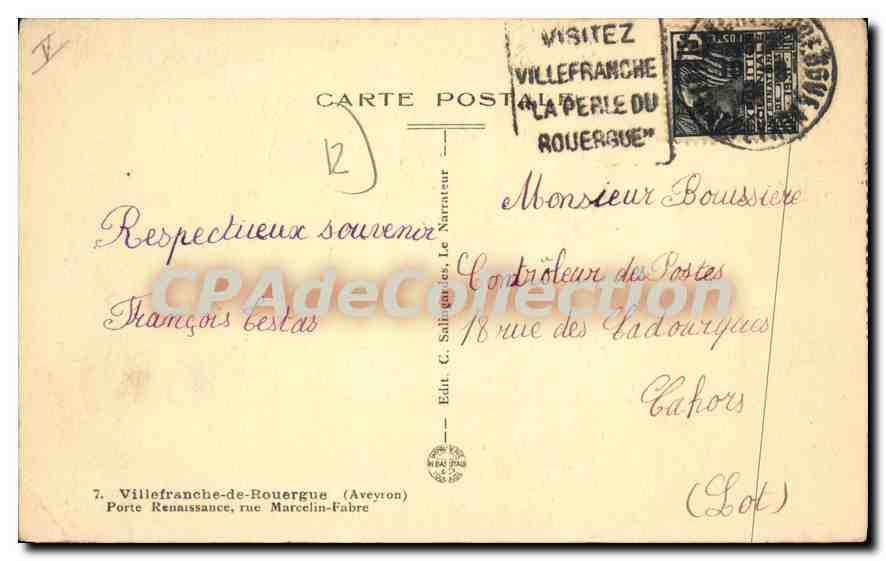 V
VISITEZ
VILLEFRANCHE
"LA PERLE DU
ROUERGUE"
15
POSTES
CARTE POSTALE
12
Respectueux souvenir
François Testas
Monsieur Bouissière
Contrôleur des Postes
18 rue des Cadourques
Cahors
(Lot)
Edit. C. Salingardes, Le Narrateur
CPAdeCollection
7. Villefranche-de-Rouergue (Aveyron)
Porte Renaissance, rue Marcelin-Fabre